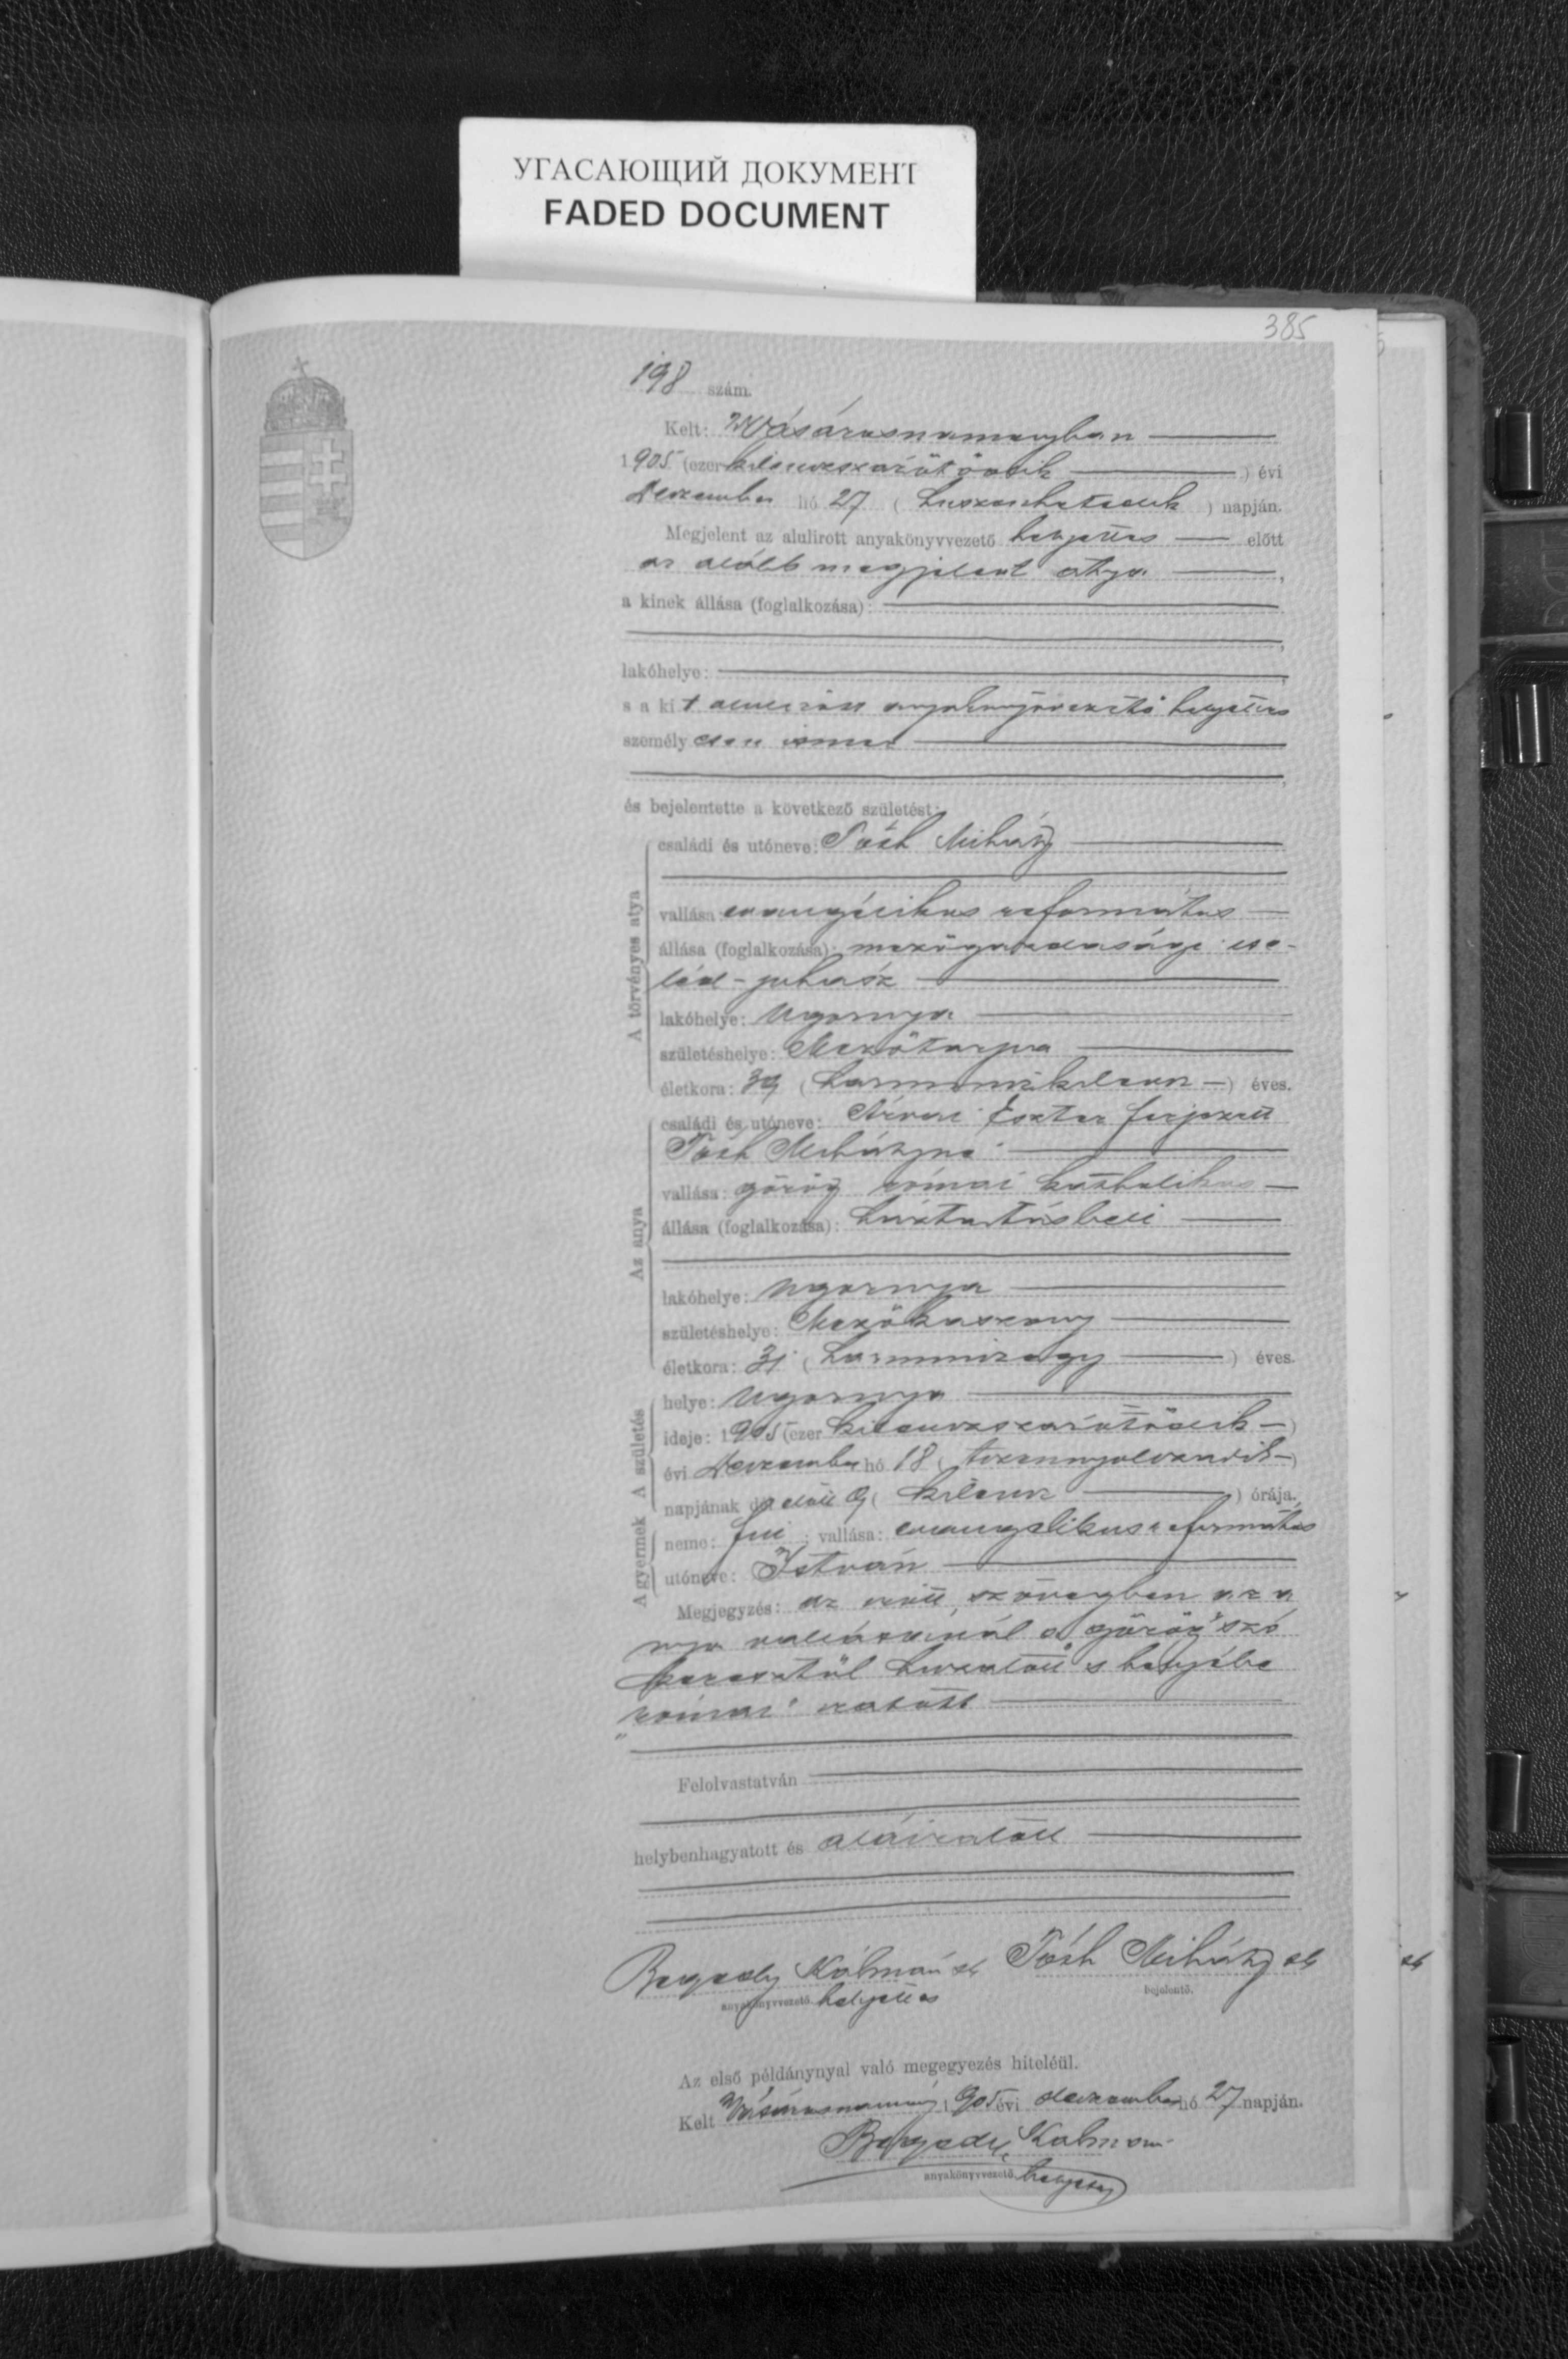 УГАСАЮЩИЙ ДОКУМЕНТ
FADED DOCUMENT
385
198 szám.
Kelt: Vásárosnaményban
1905 (ezer kilenczszázötödik) évi
deczember hó 27 (huszonhetedik) napján.
Megjelent az alulirott anyakönyvvezető helyettes előtt
az alább megjelent atya,
a kinek állása (foglalkozása):
lakóhelye:
s a kit alulirott anyakönyvvezető helyettes
személyesen ismer
és bejelentette a következő születést:
A törvényes atya
családi és utóneve: Tóth Mihály
vallása: evangélikus református
állása (foglalkozása): mezőgazdasági cse-
léd - juhász
lakóhelye: Ugornya
születéshelye: Mezőtarpa
életkora: 39 (harminczkilencz) éves.
Az anya
családi és utóneve: Eszter férjezett
Tóth Mihályné
vallása: görög római katholikus
állása (foglalkozása): háztartásbeli
lakóhelye: Ugornya
születéshelye: Mezőkaszony
életkora: 31 (harminczegy) éves.
A születés
helye: Ugornya
ideje: 1905 (ezer kilenczszázötödik)
évi deczember hó 18 (tizennyolczadik)
napjának d. előtt 9 (kilencz) órája.
A gyermek
neme: fiú; vallása: evangelikus református
utóneve: István
Megjegyzés: az előtt szövegben az a
nya vallásánál a „görög" szó
keresztül huzatott s helyébe
„római" iratott
Felolvastatván
helybenhagyatott és aláiratott
Kálmán sk Tóth Mihály sk
anyakönyvvezető helyettes bejelentő.
Az első példánynyal való megegyezés hiteléül.
Kelt Vásárosnamény 1905 évi deczember hó 27 napján.
Kálmán
anyakönyvvezető helyettes